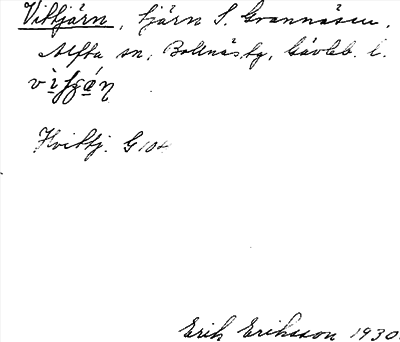 Vittjärn, tjärn S. Grannäsen,
Alfta sn, Bollnäs tg, Gävleb. l.
Hvittj. G 104
Erik Eriksson 1930.